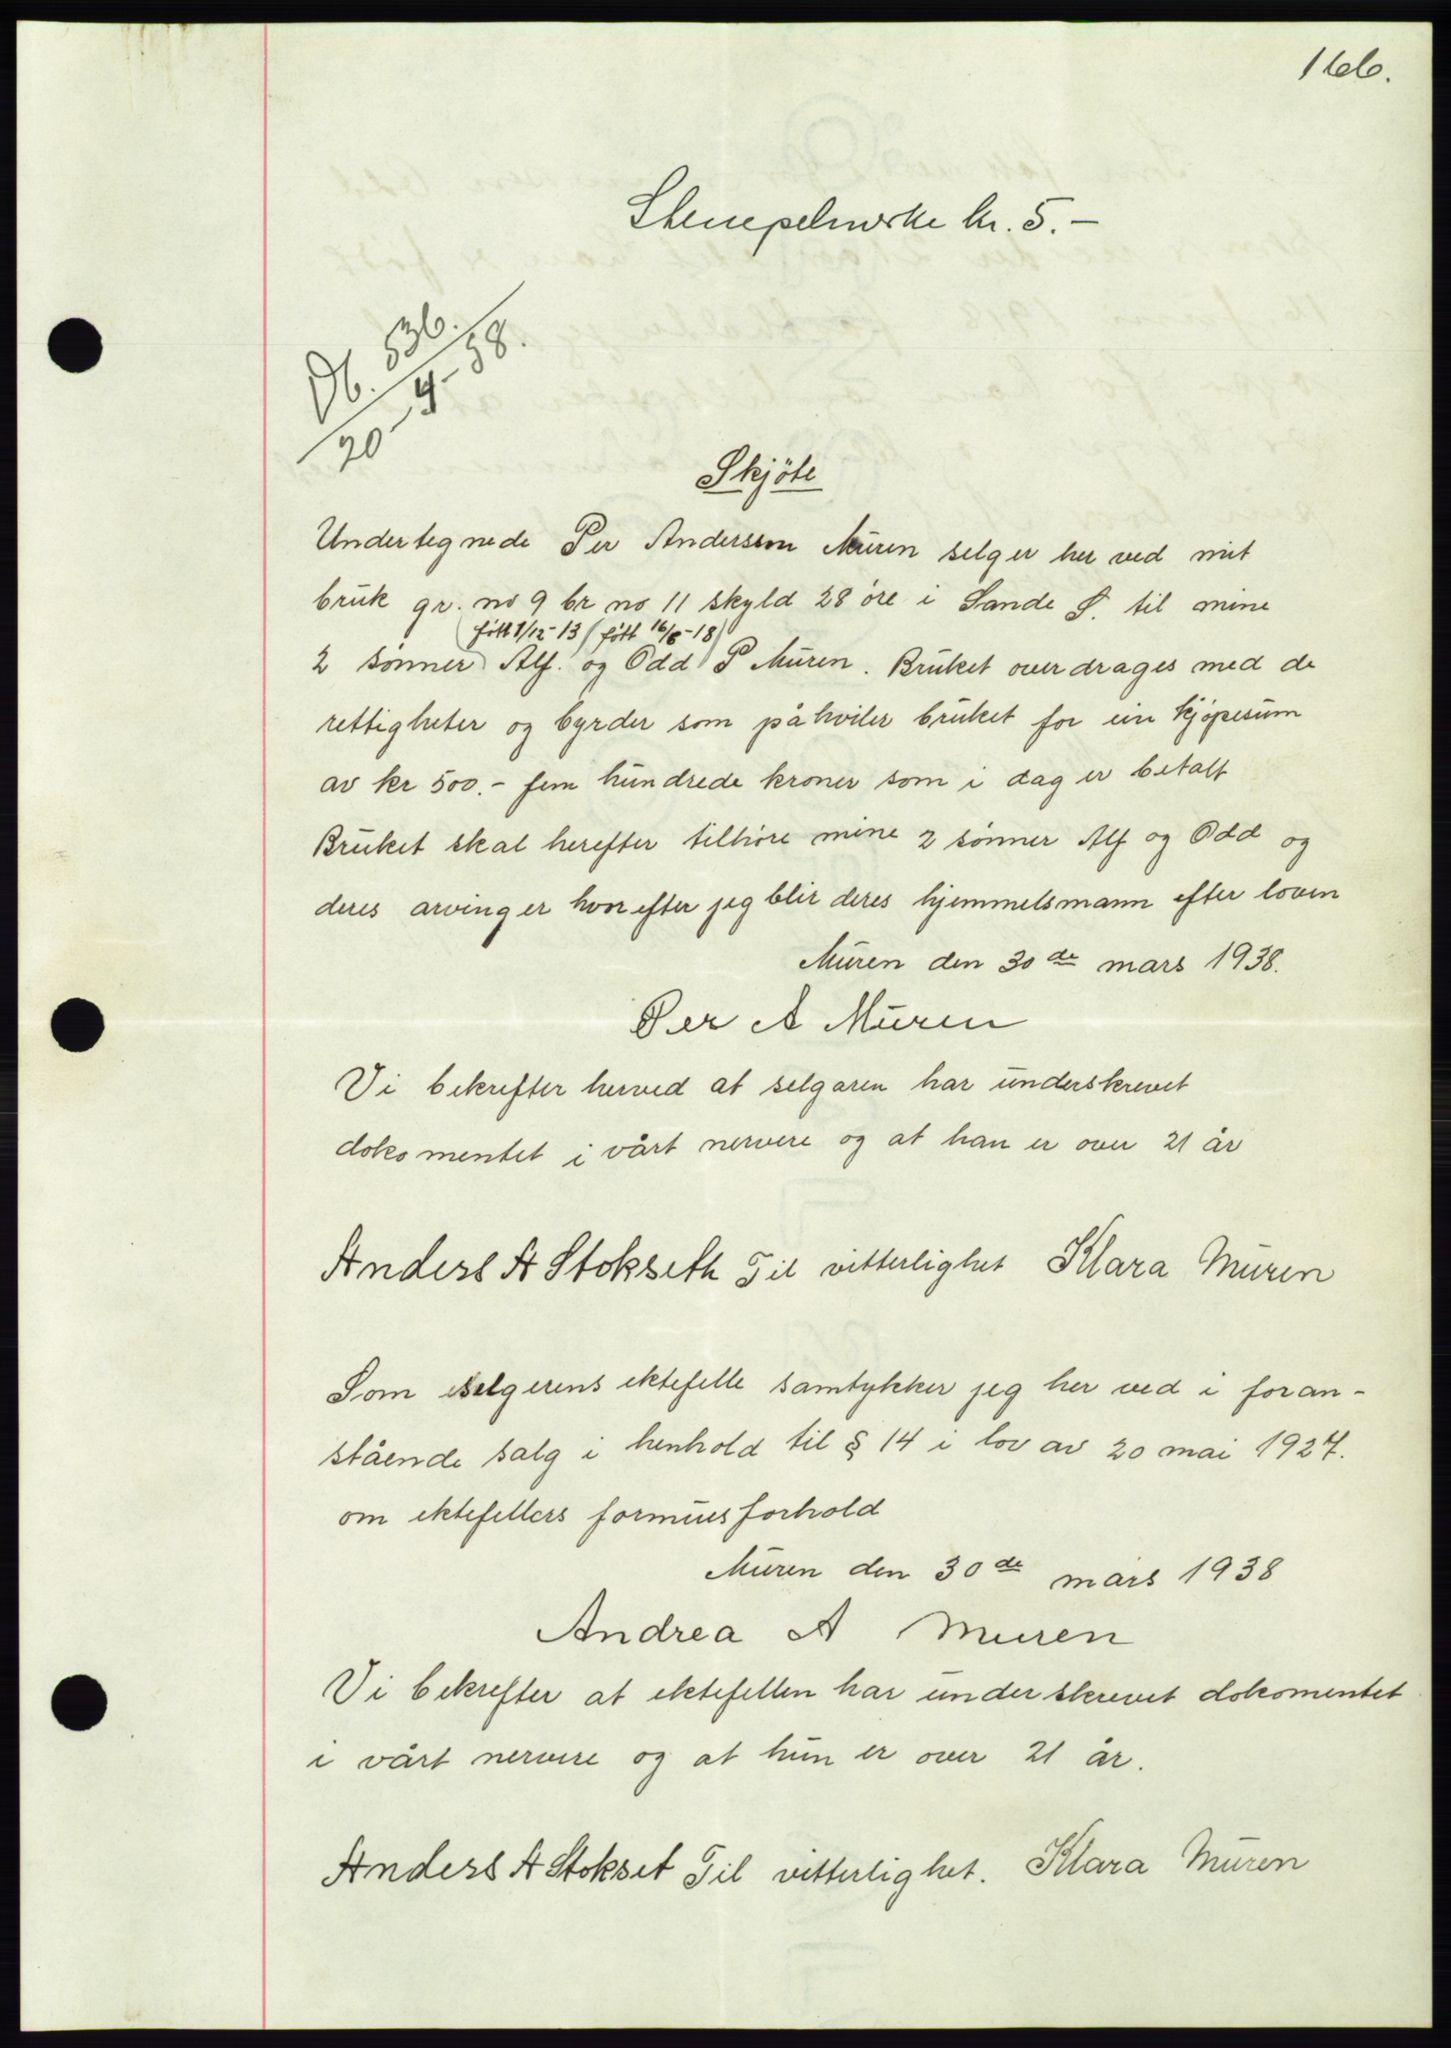 166.
Stempelmerke kr. 5.-
Db. 536.
20-4-38.
Skjöte
Undertegnede Per Anderssen Muren selger her ved mit
bruk gr. no 9 br no 11 skyld 28 öre i Sande S. til mine
(fött 1/12-13) (fött 16/6-18)
2 sönner Alf. og Odd P Muren. Bruket overdrages med de
rettigheter og byrder som påhviler bruket for ein kjöpesum
av kr 500.- fem hundrede kroner som i dag er betalt
Bruket skal herefter tilhöre mine 2 sönner Alf og Odd og
deres arvinger hvorefter jeg blir deres hjemmelsmann efter loven
Muren den 30de mars 1938.
Per A Muren
Vi bekrefter herved at selgaren har underskrevet
dokomentet i vårt nervere og at han er over 21 år
Anders A Stokseth Til vitterlighet Klara Muren
Som selgerens ektefelle samtykker jeg her ved i foran-
stående salg i henhold til § 14 i lov av 20 mai 1927.
om ektefellers formuesforhold
Muren den 30de mars 1938
Andrea A Muren
Vi bekrefter at ektefellen har underskrevet dokomentet
i vårt nervere og at hun er over 21 år.
Anders A Stokset Til vitterlighet. Klara Muren